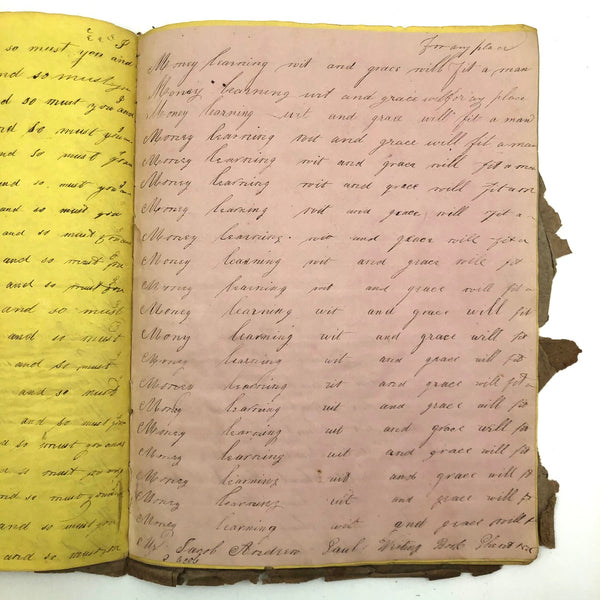 P
so must you and
and so must you
and so must you and
and so must you
and so must you
and so must you
and so must you
and so must you and
and so must you
and so must you
and so must you
and so must
and so must you
and so must
and so must you
and so must you and
and so must you
and so must you
and so must you
and so must
For any place
Money learning wit and grace will fit a man
Money learning wit and grace will for any place
Money learning wit and grace will fit a man
Money learning wit and grace will fit a man
Money learning wit and grace will fit a man
Money learning wit and grace will fit a m
Money learning wit and grace will fit a
Money learning wit and grace will fit a
Money learning wit and grace will fit
Money learning wit and grace will fit a
Money learning wit and grace will fit
Mony learning wit and grace will fit
Money learning wit and grace will fit
Money learning wit and grace will fit a
Money learning wit and grace will fit
Money learning wit and grace will fit
Money learning wit and grace will fit
Money learning wit and grace will fit
Money learning wit and grace will f
Money learning wit and grace will f
Jacob Andrew Paul Writing Book